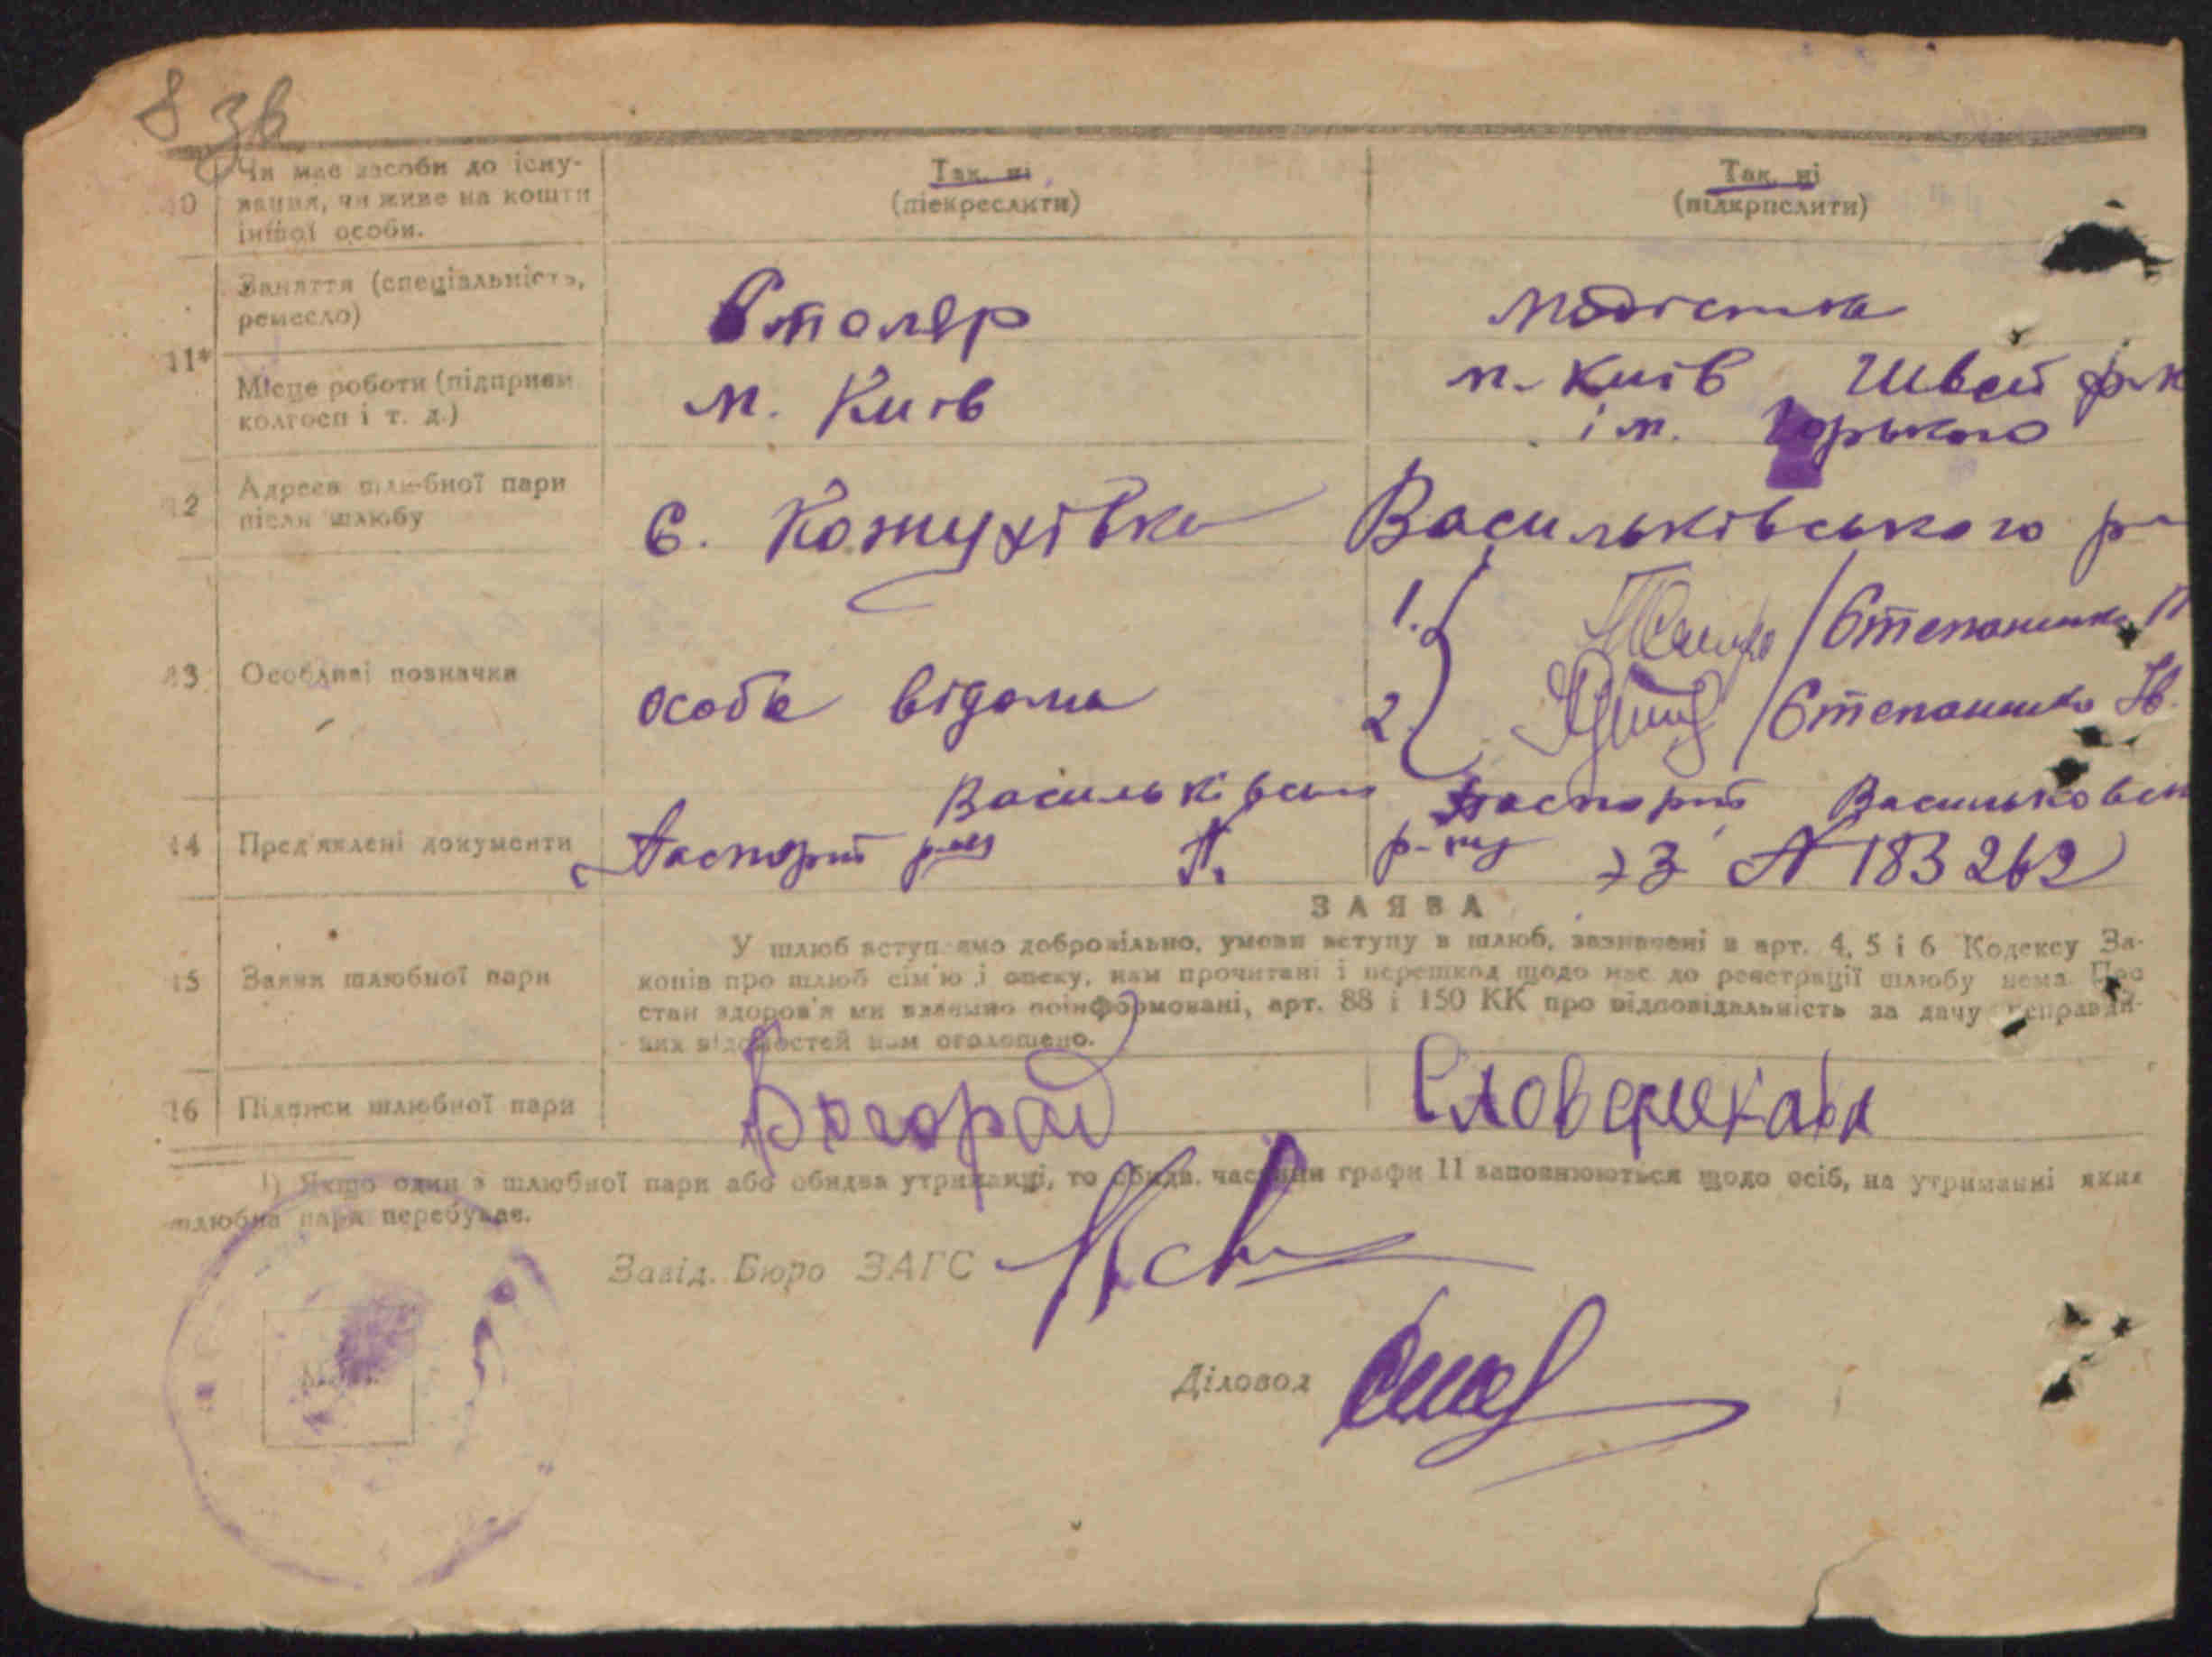 8 зв
10 Чи має засоби до існу-
вання, чи живе на кошти
іншої особи.
Так, ні
(піекреслити)
Так, ні
(підкрпслити)
11*
Заняття (спеціальність,
ремесло)
Столяр
модістка
Місце роботи (підприєм
колгосп і т. д.)
м. Київ
м. Київ Швей ф-к
ім. Горького
12 Адреса шлюбної пари
після шлюбу
с. Кожухівка Васильківського р-
13 Особливі позначки
особа відома
1. / Степаненко П
2. / Степаненко Ів.
14 Пред'явлені документи
Васильківськ
Паспорт
Паспорт Васильковск
183262
ЗАЯВА
15 Заява шлюбної пари
У шлюб вступаємо добровільно, умови вступу в шлюб, зазначені в арт. 4, 5 і 6 Кодексу За-
конів про шлюб сім'ю і опеку, нам прочитані і перешкод щодо нас до реєстрації шлюбу нема. Про
стан здоров'я ми взаємно поінформовані, арт. 88 і 150 КК про відповідальність за дачу несправди-
вих відомостей нам оголошено.
16 Підписи шлюбної пари
Богорад
1) Якщо один з шлюбної пари або обидва утриманці, то обидв. частини графи 11 заповнюються щодо осіб, на утриманні яких
шлюбна пара перебуває.
Завід. Бюро ЗАГС
Діловод